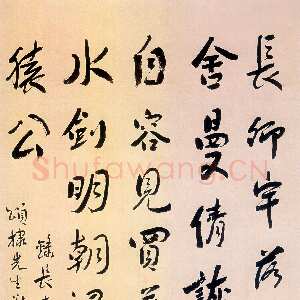 長卿牢落
舍曼倩詼
自容見買
水劍明朝
猿公
錄長
頌棣先生
Shufawang.CN